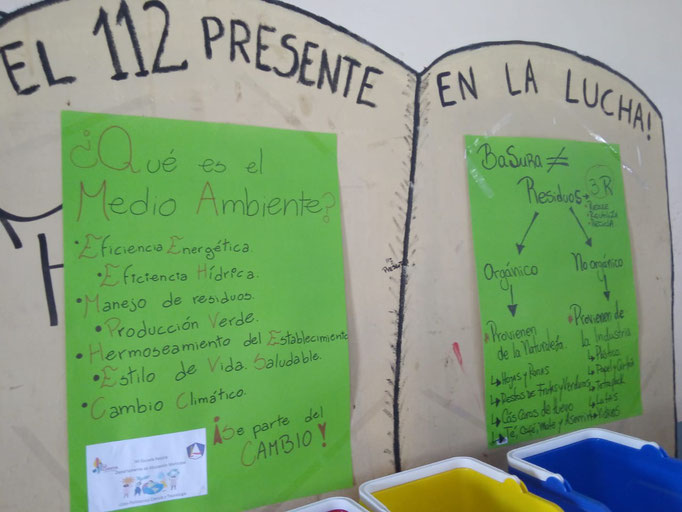 EL 112 PRESENTE
EN LA LUCHA!
¿Qué es el
Medio Ambiente?
• Eficiencia Energética.
• Eficiencia Hídrica.
• Manejo de residuos.
• Producción Verde.
• Hermoseamiento del Establecimiento
• Estilo de Vida Saludable.
• Cambio Climático.
¡Se parte del
CAMBIO!
Mi Escuela
Departamento de Educación
BaSura ≠
Residuos → 3R
• Reduce
• Reutiliza
• Recicla
Orgánico
No orgánico
* Provienen
de la Naturaleza
↳ Hojas y Ramas
↳ Restos de Frutas y Verduras
↳ Cáscaras de Huevo
↳ Té, café, Mate y
* Provienen de
la Industria
↳ Plástico
↳ Papel y Cartón
↳ Tetra pack
↳ Latas
↳ Vidrio